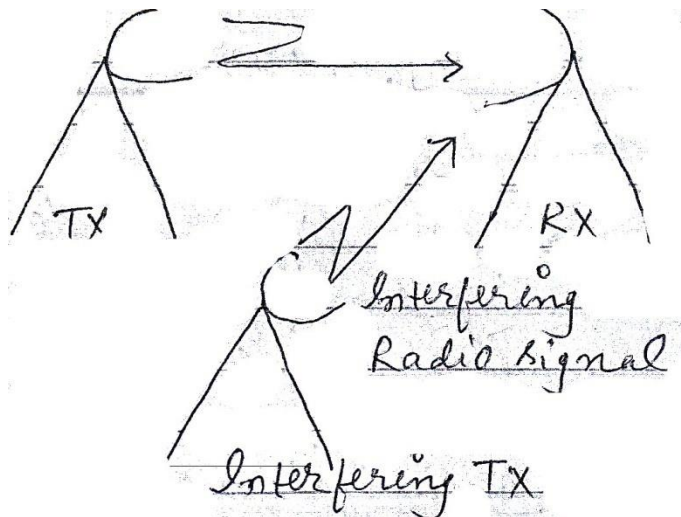 TX
RX
Interfering
Radio signal
Interfering TX